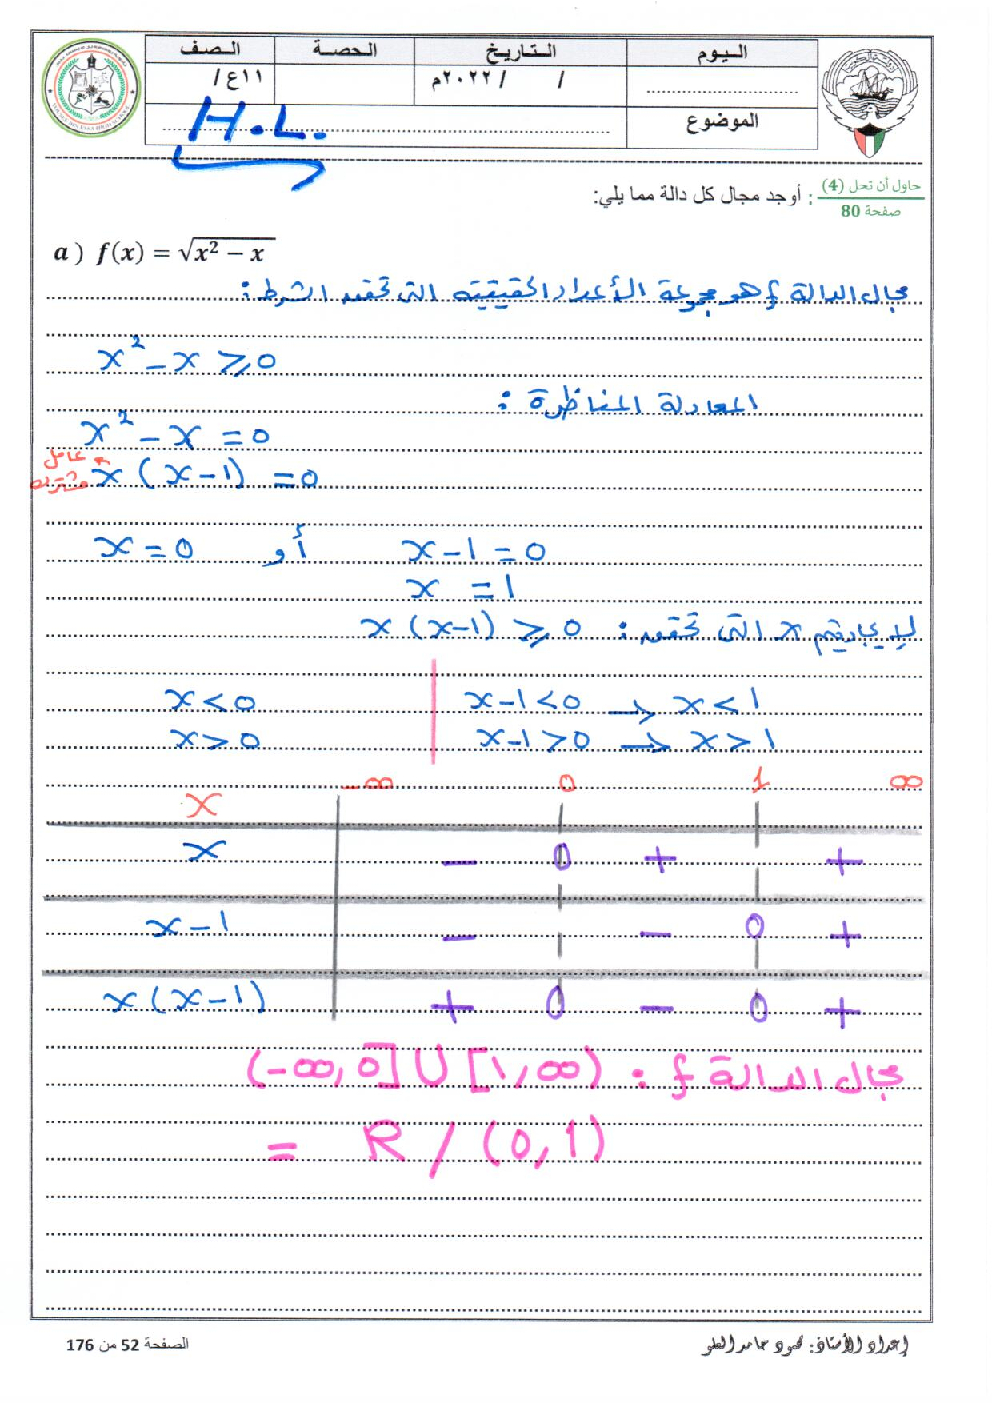 اليوم التاريخ الحصة الصف
/ / ٢٠٢٢م ١١ع /
الموضوع H.L.
حاول أن تحل (4)
صفحة 80
: أوجد مجال كل دالة مما يلي:
a ) f(x) = √(x² − x)
مجال الدالة f هو مجموعة الأعداد الحقيقية التي تحقق الشرط:
x² − x ⩾ 0
المعادلة المناظرة :
x² − x = 0
عامل مشترك x (x−1) = 0
x = 0 أو x−1 = 0
x = 1
لإيجاد قيم x التي تحقق : x (x−1) ⩾ 0
x < 0 x−1 < 0 → x < 1
x > 0 x−1 > 0 → x > 1
x −∞ 0 1 ∞
x − 0 + +
x−1 − − 0 +
x (x−1) + 0 − 0 +
مجال الدالة f : (−∞, 0] ∪ [1, ∞)
= R / (0, 1)
إعداد الأستاذ: محمود حامد الطو
الصفحة 52 من 176